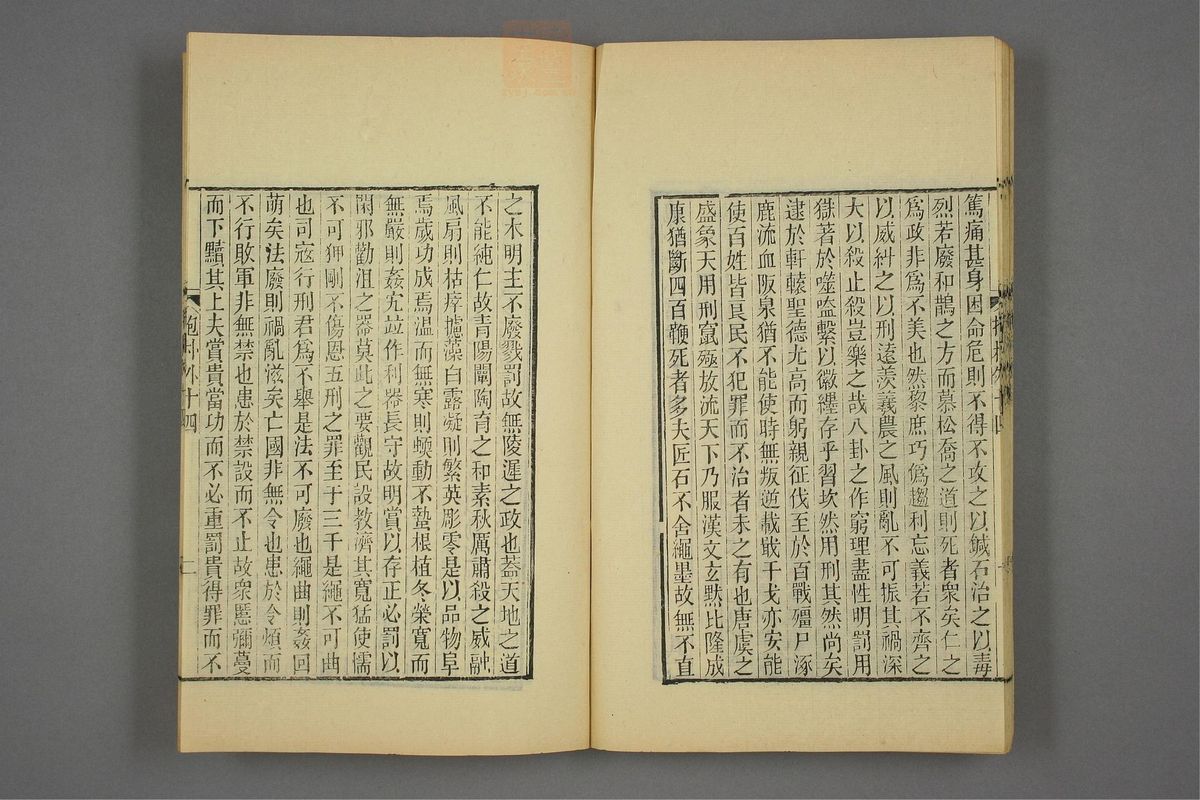 篤痛甚身困命危則不得不攻之以鍼石治之以毒
烈若廢和鵲之方而慕松喬之道則死者衆矣仁之
爲政非爲不美也然黎庶巧僞趨利忘義若不齊之
以威糾之以刑遠羨羲農之風則亂不可振其禍深
大以殺止殺豈樂之哉八卦之作窮理盡性明罰用
獄著於噬嗑繫以徽纆存乎習坎然用刑其然尚矣
逮於軒轅聖德尤高而躬親征伐至於百戰殭尸涿
鹿流血阪泉猶不能使時無叛逆載戢干戈亦安能
使百姓皆良民不犯罪而不治者未之有也唐虞之
盛象天用刑竄殛放流天下乃服漢文玄默比隆成
康猶斷四百鞭死者多夫匠石不舍繩墨故無不直
之木明主不廢戮罰故無陵遲之政也蓋天地之道
不能純仁故青陽闡陶育之和素秋厲肅殺之威融
風扇則枯瘁攄藻白露凝則繁英彫零是以品物阜
焉歲功成焉温而無寒則蝡動不蟄根植冬榮寬而
無嚴則姦宄竝作利器長守故明賞以存正必罰以
閑邪勸沮之器莫此之要觀民設教濟其寬猛使懦
不可狎剛不傷恩五刑之罪至于三千是繩不可曲
也司寇行刑君爲不舉是法不可廢也繩曲則姦回
萌矣法廢則禍亂滋矣亡國非無令也患於令煩而
不行敗軍非無禁也患於禁設而不止故衆慝彌蔓
而下黷其上夫賞貴當功而不必重罰貴得罪而不
抱朴外十四
二